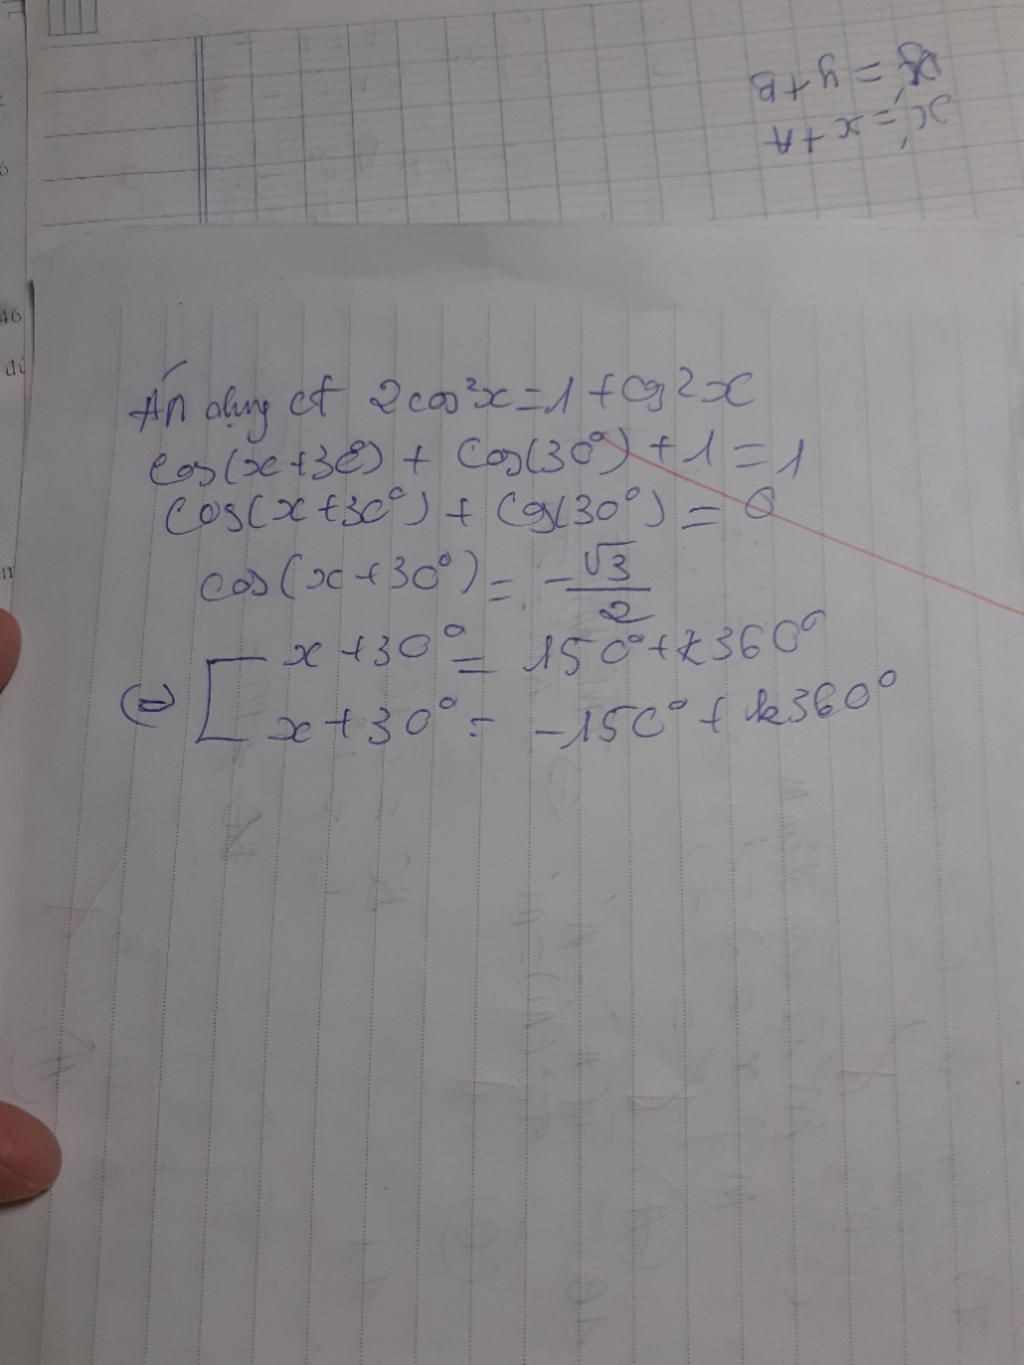 y' = y + B
x' = x + A
46
Áp dụng ct 2cos²x = 1 + cos2x
cos(x+30°) + cos(30°) + 1 = 1
cos(x+30°) + cos(30°) = 0
cos(x+30°) = -√3/2
(=) [ x + 30° = 150° + k360°
x + 30° = -150° + k360°